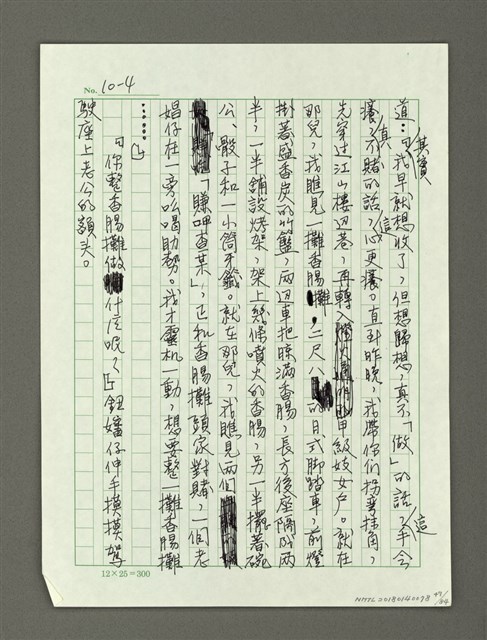 No. 10-4
道：「其實我早就想收了，但想歸想，真不「做」的話，這手会
癢，真不賭的話，這心更癢。直到昨晚，我帶你們拐彎抹角，
先穿过江山樓边巷，再轉入甲級妓女戶。就在
那兒，我瞧見一攤香腸攤，二尺八的日式脚踏車，前燈
掛著盛香皮的竹籃，兩边車把晾滿香腸，長方後座隔成兩
半，一半鋪設烤架，架上幾條噴火的香腸，另一半擺著碗
公、骰子和一小筒牙籤。就在那兒，我瞧見兩個
「賺呷查某」，正和香腸攤頭家對賭，一個老
娼仔在一旁吆喝助勢。我才靈机一動，想要整一攤香腸攤
……」
「你整香腸攤做什庅呢？」鈕嬸仔伸手摸摸駕
駛座上老公的額头。
12×25=300
NMTL20180140078 47/84